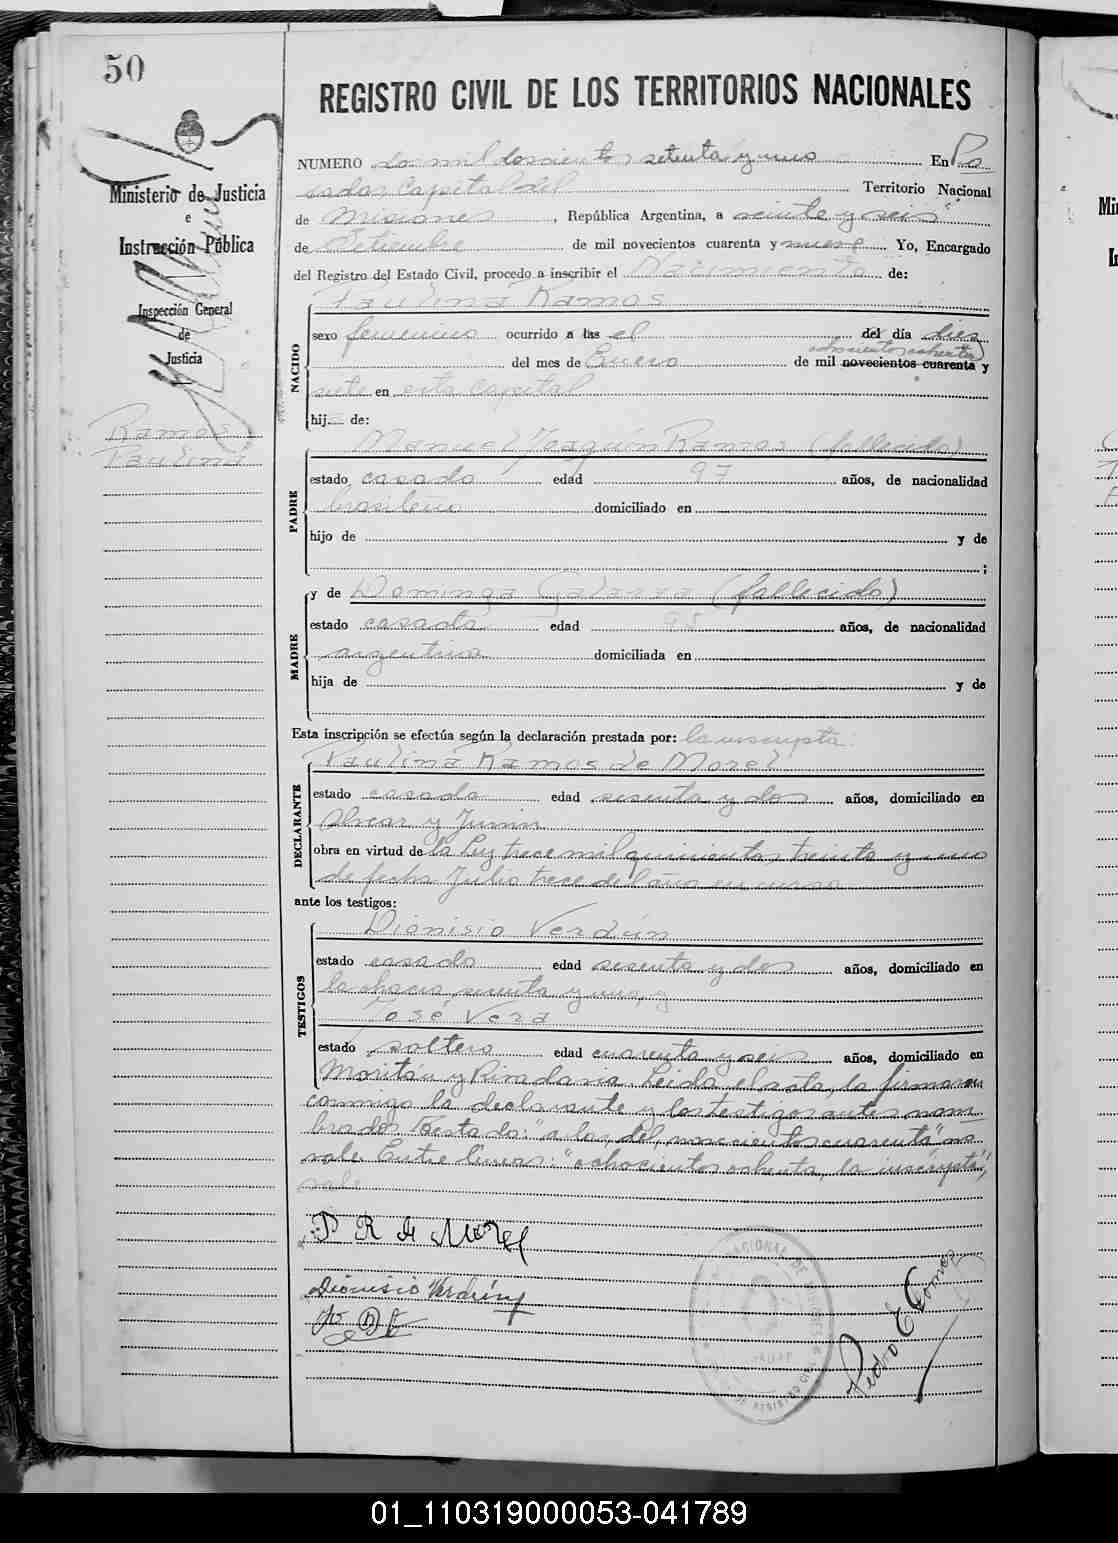 50
REGISTRO CIVIL DE LOS TERRITORIOS NACIONALES
Ministerio de Justicia
e
Instrucción Pública
Inspección General
de
Justicia
Ramos
Paulina
NUMERO Dos mil doscientos setenta y uno En Po
sadas Capital del Territorio Nacional
de Misiones, República Argentina, a veinte y seis
de Setiembre de mil novecientos cuarenta y nueve Yo, Encargado
del Registro del Estado Civil, procedo a inscribir el Nacimiento de:
NACIDO
Paulina Ramos
sexo femenino ocurrido a las el del día diez
ochocientos ochenta
del mes de Enero de mil novecientos cuarenta y
siete en esta Capital
hij de:
PADRE
Manuel Joaquín Ramos (fallecido)
estado casado edad 97 años, de nacionalidad
brasileño domiciliado en
hijo de y de
;
MADRE
y de Dominga Galarza (fallecido)
estado casada edad 95 años, de nacionalidad
argentina domiciliada en
hija de y de
Esta inscripción se efectúa según la declaración prestada por: la inscripta
DECLARANTE
Paulina Ramos de Morel
estado casada edad sesenta y dos años, domiciliado en
Alvear y Junin
obra en virtud de la Ley trece mil quinientos treinta y uno
de fecha Julio trece del año en curso
ante los testigos:
TESTIGOS
Dionisio Verdún
estado casado edad sesenta y dos años, domiciliado en
la chacra sesenta y uno, y
José Vera
estado soltero edad cuarenta y seis años, domiciliado en
Moritán y Rivadavia Leida el acta, la firmaron
conmigo la declarante y los testigos antes nom
brados Testado: "a las, del, novecientos cuarenta" no
vale. Entre lineas: "ochocientos ochenta, la inscripta",
vale
P R de Morel
Dionisio Verdún
Pedro E Gomez
01_110319000053-041789